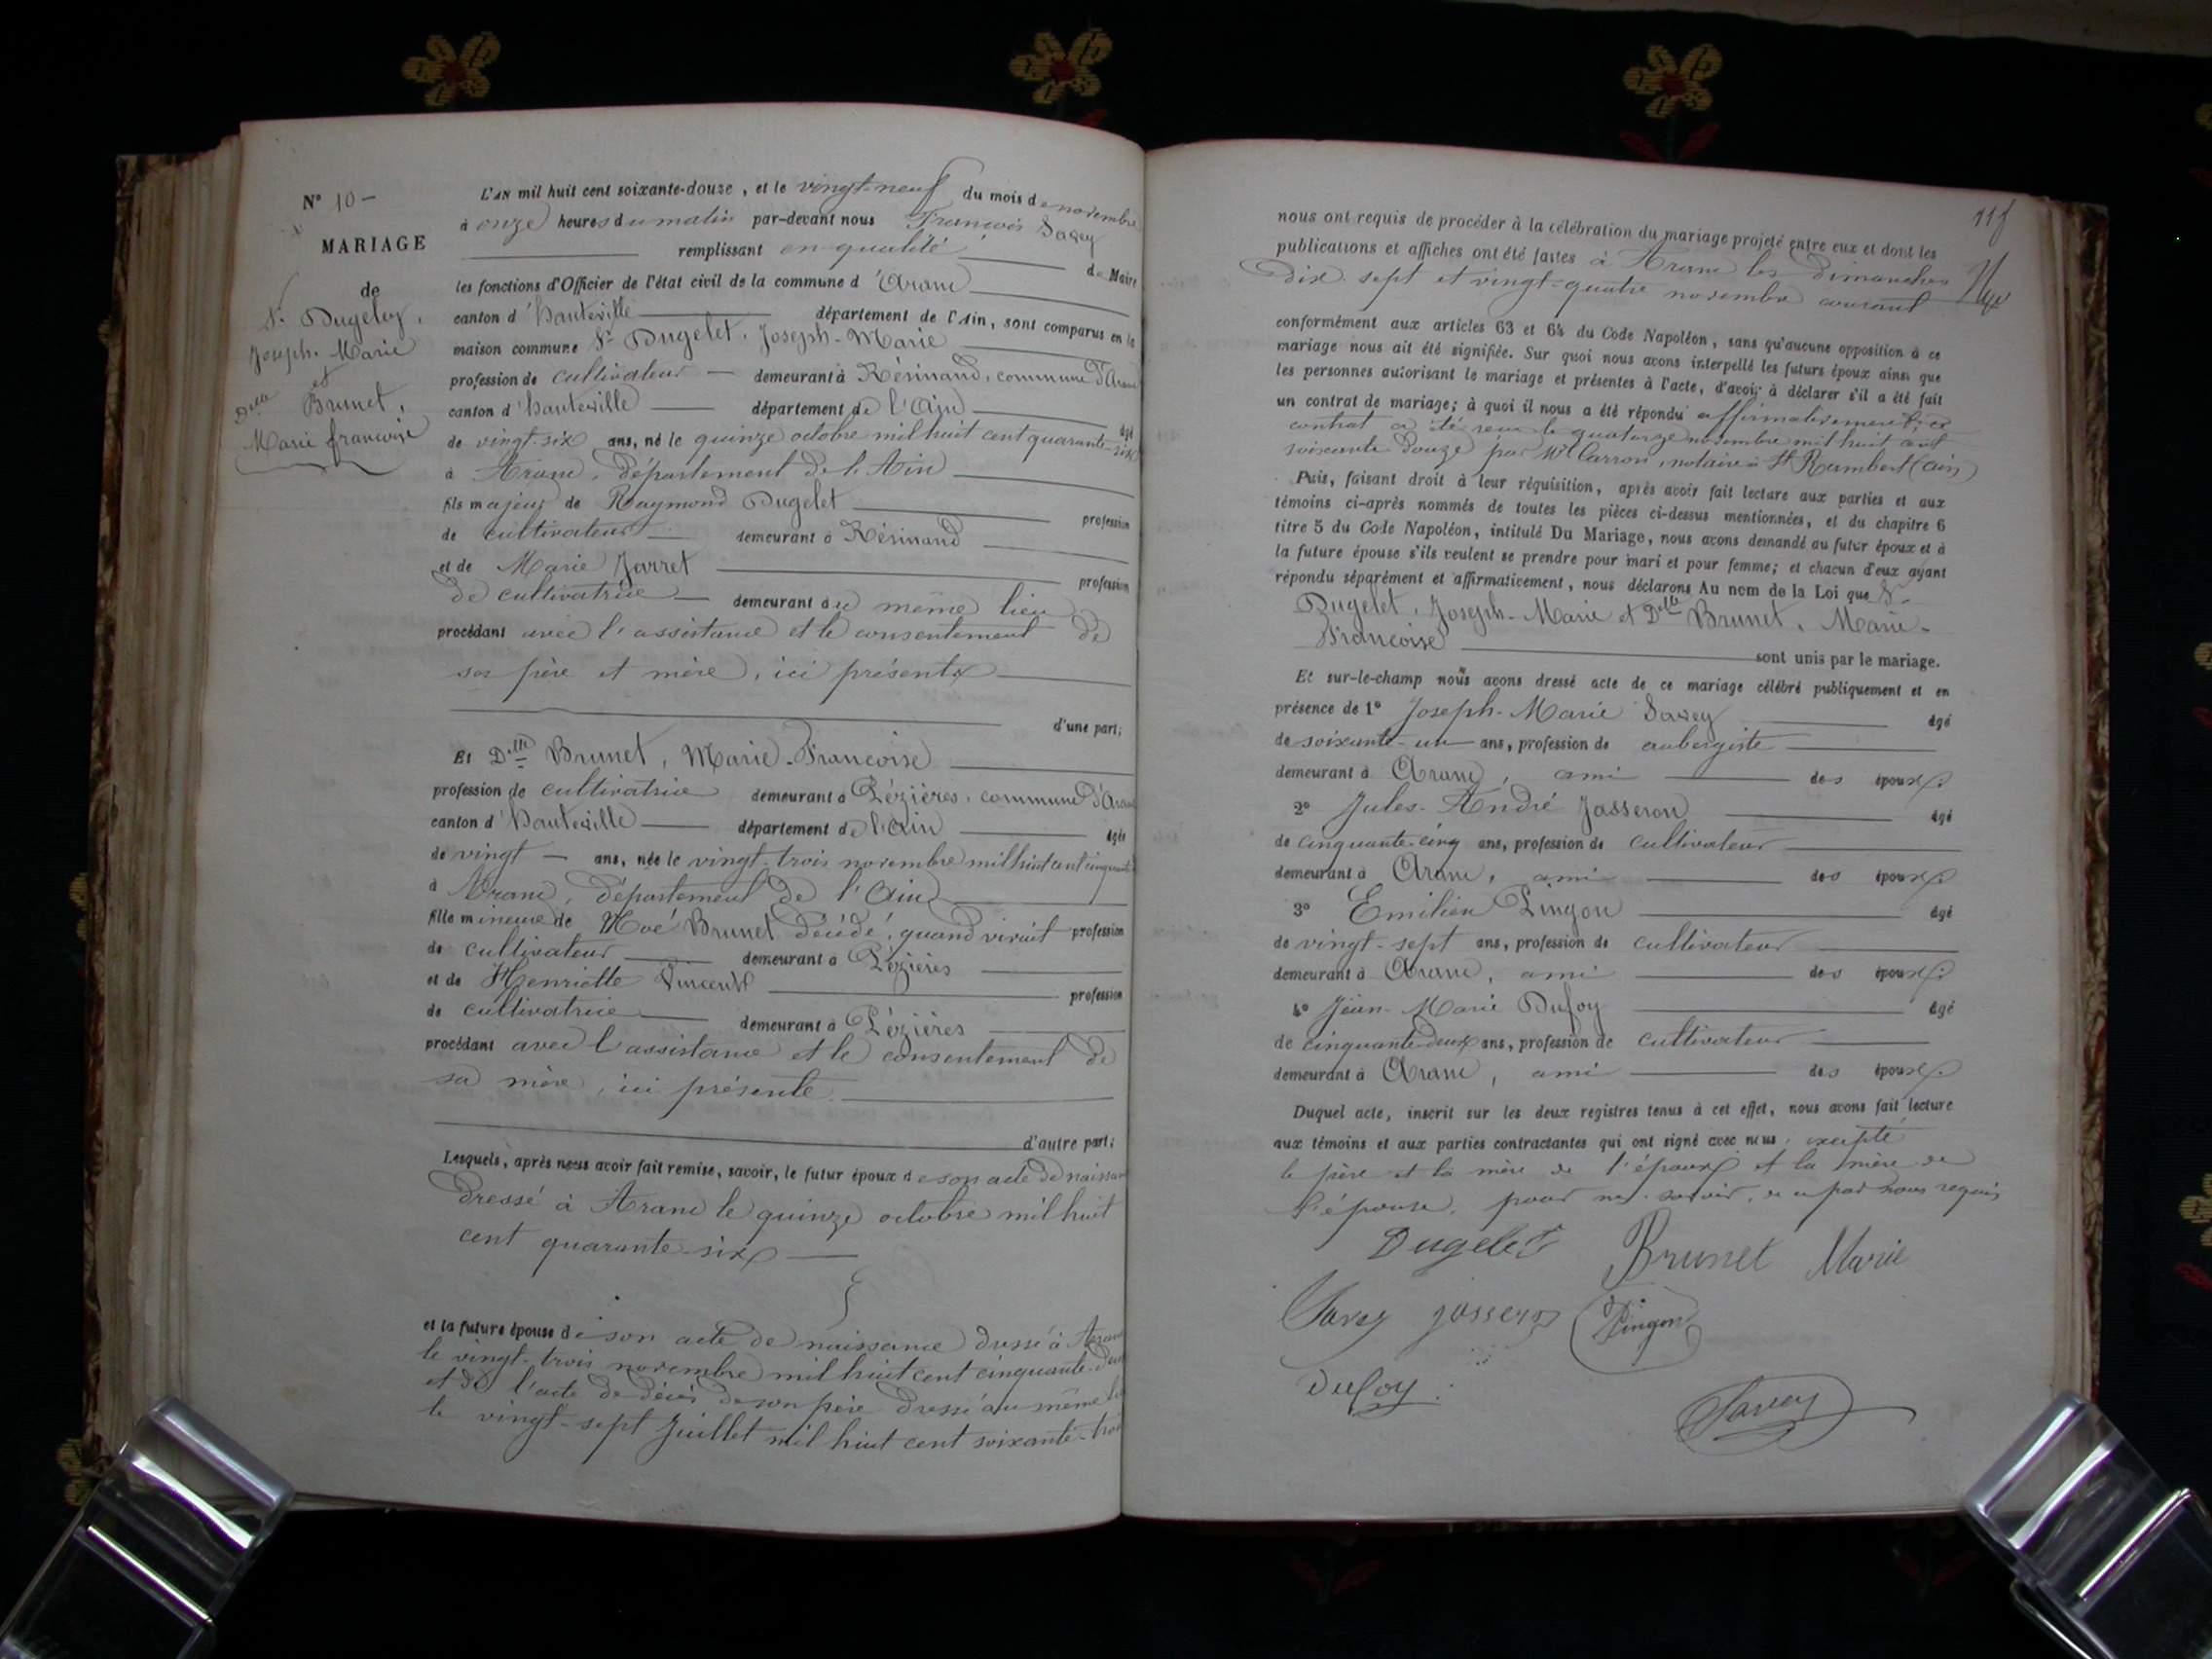 N° 10 -
MARIAGE
de
Sr Dugelay,
Joseph-Marie
et
Delle Brunet,
Marie françoise
L'AN mil huit cent soixante-douze, et le vingt-neuf du mois de novembre
à onze heures du matin par-devant nous François Savey
remplissant en qualité de Maire
les fonctions d'Officier de l'état civil de la commune d'Aranc
canton d'hauteville département de l'Ain, sont comparus en la
maison commune Sr Dugelet, Joseph-Marie
profession de cultivateur demeurant à Résinand, commune d'Aranc
canton d'hauteville département de l'Ain âgé
de vingt-six ans, né le quinze octobre mil huit cent quarante-six
à Aranc, département de l'Ain
fils majeur de Raymond Dugelet profession
de cultivateur demeurant à Résinand
et de Marie Jarret profession
de cultivatrice demeurant au même lieu
procédant avec l'assistance et le consentement de
ses père et mère, ici présents
d'une part;
Et Delle Brunet, Marie-Françoise
profession de cultivatrice demeurant à Pézières, commune d'Aranc
canton d'hauteville département de l'Ain âgée
de vingt ans, née le vingt-trois novembre mil huit cent cinquante
à Aranc, département de l'Ain
fille mineure de Noé Brunet décédé, quand vivait profession
de cultivateur demeurant à Pézières
et de Henriette Vincent profession
de cultivatrice demeurant à Pézières
procédant avec l'assistance et le consentement de
sa mère, ici présente
d'autre part;
Lesquels, après nous avoir fait remise, savoir, le futur époux de son acte de naissance
dressé à Aranc le quinze octobre mil huit
cent quarante-six
et la future épouse de son acte de naissance dressé à Aranc
le vingt-trois novembre mil huit cent cinquante-deux
et de l'acte de décès de son père dressé au même lieu
le vingt-sept Juillet mil huit cent soixante-trois
nous ont requis de procéder à la célébration du mariage projeté entre eux et dont les
publications et affiches ont été faites à Aranc les dimanches
dix sept et vingt-quatre novembre courant
conformément aux articles 63 et 64 du Code Napoléon, sans qu'aucune opposition à ce
mariage nous ait été signifiée. Sur quoi nous avons interpellé les futurs époux ainsi que
les personnes autorisant le mariage et présentes à l'acte, d'avoir à déclarer s'il a été fait
un contrat de mariage; à quoi il nous a été répondu affirmativement, ce
contrat a été reçu le quatorze novembre mil huit cent
soixante douze par Me Carron, notaire à St Rambert (Ain)
Puis, faisant droit à leur réquisition, après avoir fait lecture aux parties et aux
témoins ci-après nommés de toutes les pièces ci-dessus mentionnées, et du chapitre 6
titre 5 du Code Napoléon, intitulé Du Mariage, nous avons demandé au futur époux et à
la future épouse s'ils veulent se prendre pour mari et pour femme; et chacun d'eux ayant
répondu séparément et affirmativement, nous déclarons Au nom de la Loi que Sr
Dugelet, Joseph-Marie et Delle Brunet, Marie-
Françoise sont unis par le mariage.
Et sur-le-champ nous avons dressé acte de ce mariage célébré publiquement et en
présence de 1° Joseph-Marie Savey âgé
de soixante-un ans, profession de aubergiste
demeurant à Aranc, ami des époux.
2° Jules-André Jasseron âgé
de cinquante-cinq ans, profession de cultivateur
demeurant à Aranc, ami des époux.
3° Emilien Pingon âgé
de vingt-sept ans, profession de cultivateur
demeurant à Aranc, ami des époux.
4° Jean-Marie Dufoy âgé
de cinquante-deux ans, profession de cultivateur
demeurant à Aranc, ami des époux.
Duquel acte, inscrit sur les deux registres tenus à cet effet, nous avons fait lecture
aux témoins et aux parties contractantes qui ont signé avec nous, excepté
le père et la mère de l'époux et la mère de
l'épouse, pour ne savoir, de ce par nous requis
Dugelet Brunet Marie
Savey Jasseron Pingon
Dufoy.
Savey